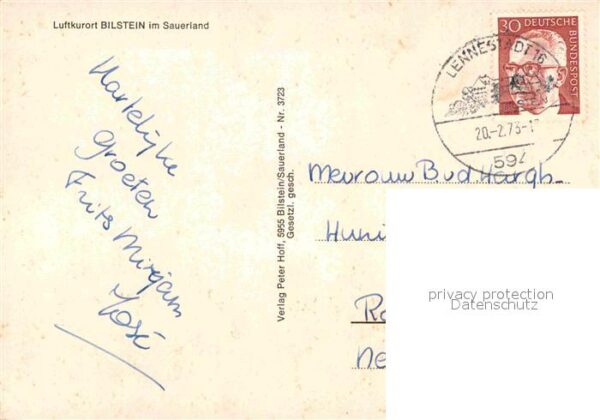 Luftkurort BILSTEIN im Sauerland
Hartelijke
groeten
Frits Mirjam
José
Verlag Peter Hoff, 5955 Bilstein/Sauerland - Nr. 3723
Gesetzl. gesch.
30 DEUTSCHE BUNDESPOST
LENNESTADT 16
20.-2.73-1
594
Mevrouw
Huni
Ne
privacy protection
Datenschutz